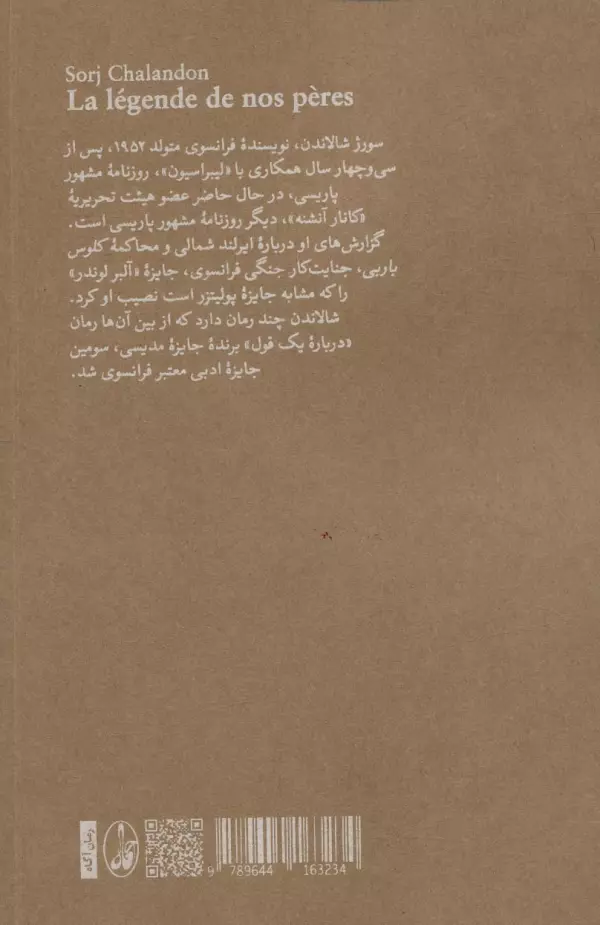 Sorj Chalandon
La légende de nos pères
سورژ شالاندن، نویسندهٔ فرانسوی متولد ۱۹۵۲، پس از
سی‌وچهار سال همکاری با «لیبراسیون»، روزنامهٔ مشهور
پاریسی، در حال حاضر عضو هیئت تحریریهٔ
«کانار آنشنه»، دیگر روزنامهٔ مشهور پاریسی است.
گزارش‌های او دربارهٔ ایرلند شمالی و محاکمهٔ کلوس
باربی، جنایت‌کار جنگی فرانسوی، جایزهٔ «آلبر لوندر»
را که مشابه جایزهٔ پولیتزر است نصیب او کرد.
شالاندن چند رمان دارد که از بین آن‌ها رمان
«دربارهٔ یک قول» برندهٔ جایزهٔ مدیسی، سومین
جایزهٔ ادبی معتبر فرانسوی شد.
رمان آگاه
آگاه
9 789644 163234